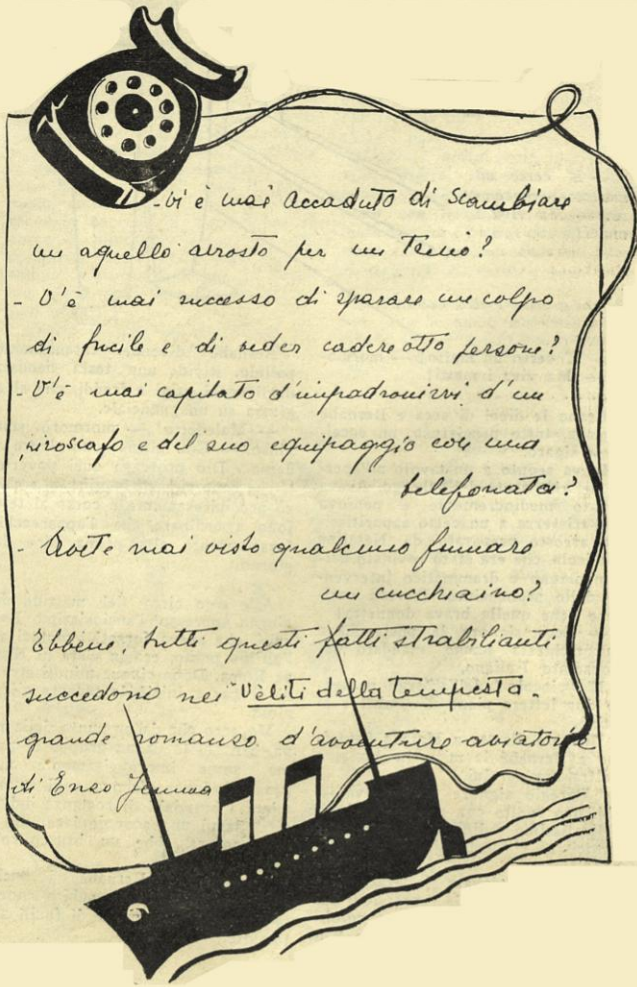 - Vi è mai accaduto di scambiare
un agnello arrosto per un Tenio?
- V'è mai successo di sparare un colpo
di fucile e di veder cadere otto persone?
- V'è mai capitato d'impadronirvi d'un
piroscafo e del suo equipaggio con una
telefonata?
- Avete mai visto qualcuno fumare
un cucchiaino?
Ebbene, tutti questi fatti strabilianti
succedono nei "Vèliti della tempesta.
grande romanzo d'avventure aviatorie
di Enzo Jemma